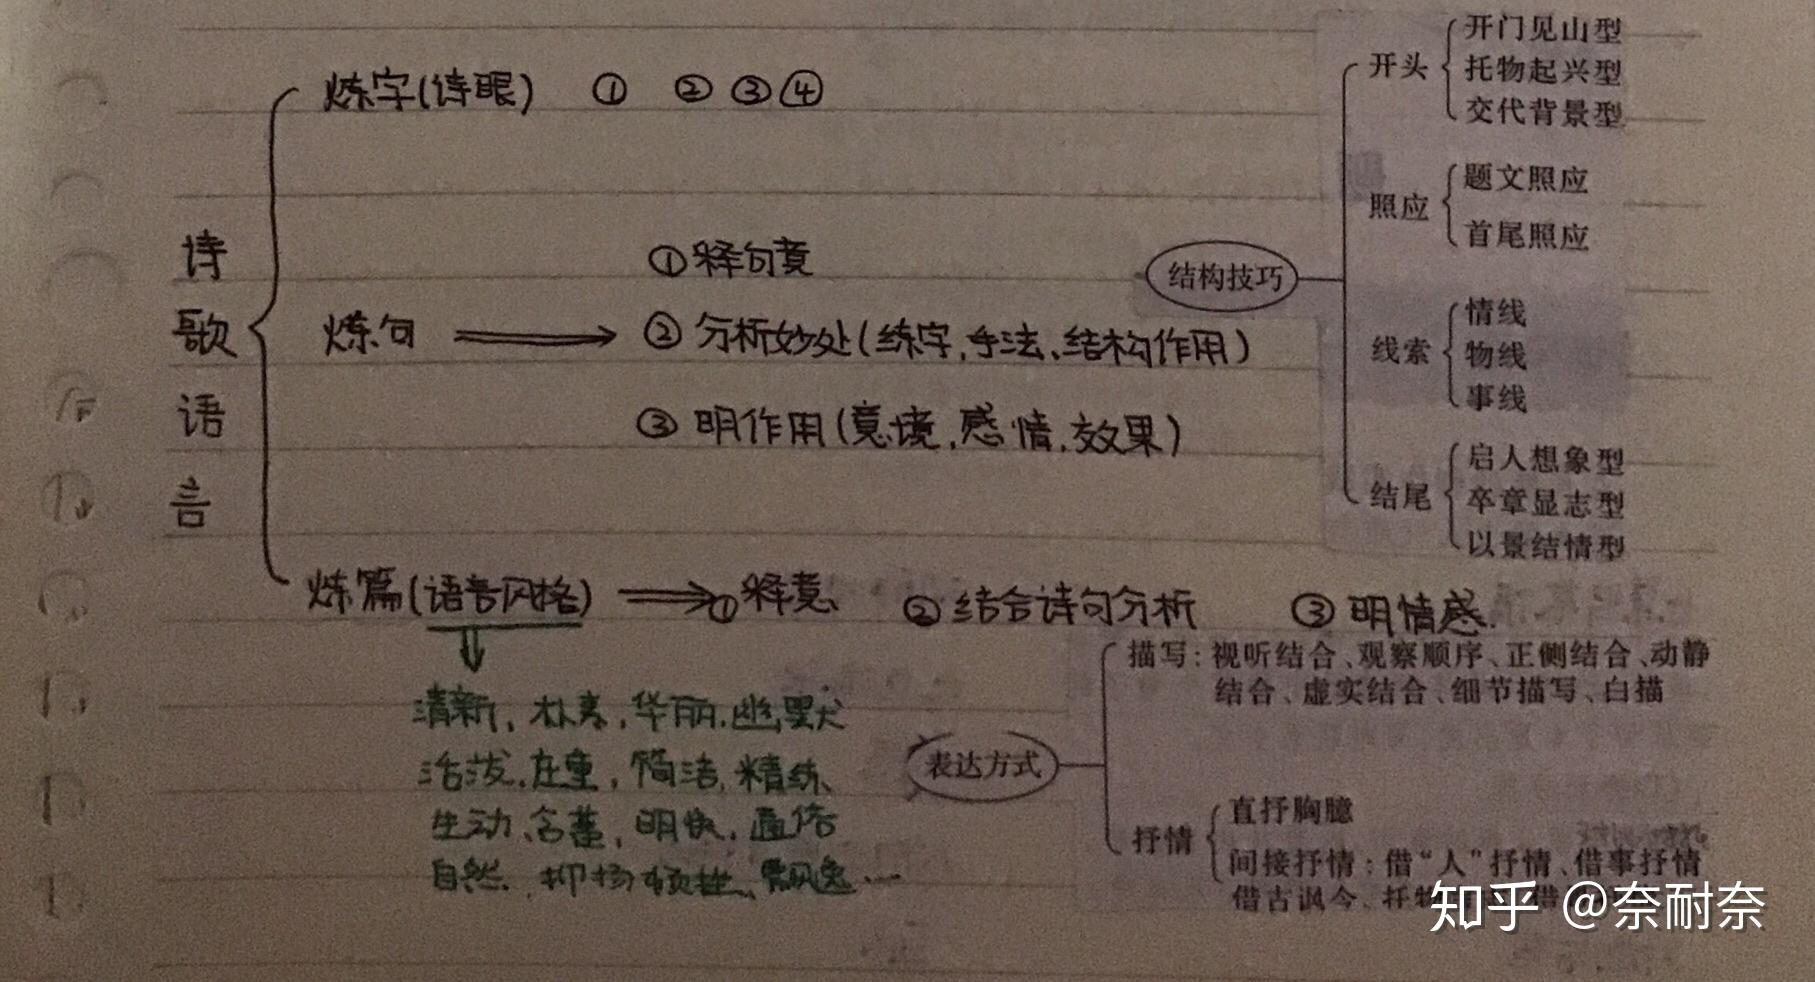 诗歌语言
炼字(诗眼) ① ② ③ ④
炼句
①释句意
②分析妙处(练字,手法、结构作用)
③明作用(意境,感情,效果)
炼篇(语言风格) ①释意 ②结合诗句分析 ③明情感.
清新,朴素,华丽,幽默
活泼,庄重,简洁,精练、
生动、含蓄,明快,通俗
自然,抑扬顿挫、飘逸…
结构技巧
开头
开门见山型
托物起兴型
交代背景型
照应
题文照应
首尾照应
线索
情线
物线
事线
结尾
启人想象型
卒章显志型
以景结情型
表达方式
描写:视听结合、观察顺序、正侧结合、动静
结合、虚实结合、细节描写、白描
抒情
直抒胸臆
间接抒情:借“人”抒情、借事抒情
借古讽今、托物
知乎 @奈耐奈